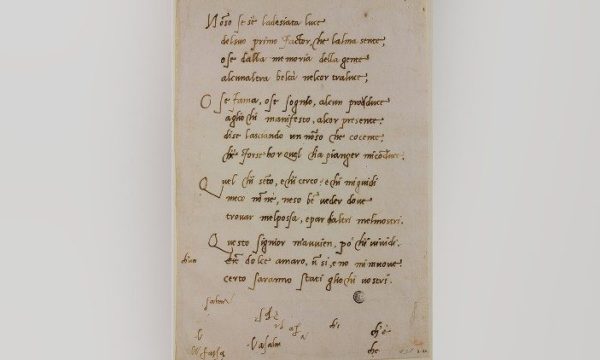 Nōso se sè ladesiata luce
delsuo primo factor che lalma sente,
ose dalla memoria della gente
alcunaltra beltà nelcor traluce;
O se fama, ose sognio, alcun prodduce
agliochi manifesto, alcor presente
dise lasciando un nōso che cocente
che forsehor quel cha pianger miconduce;
Quel chi sēto, echi cerco: echi miguidi
meco nōné, neso bē veder dove
trovar melpossa, epar daltri melmostri.
Questo signior mavvien, po chi vividi.
dolce amaro, ū si, e no mi muove
certo saranno stati gliochi vostri.